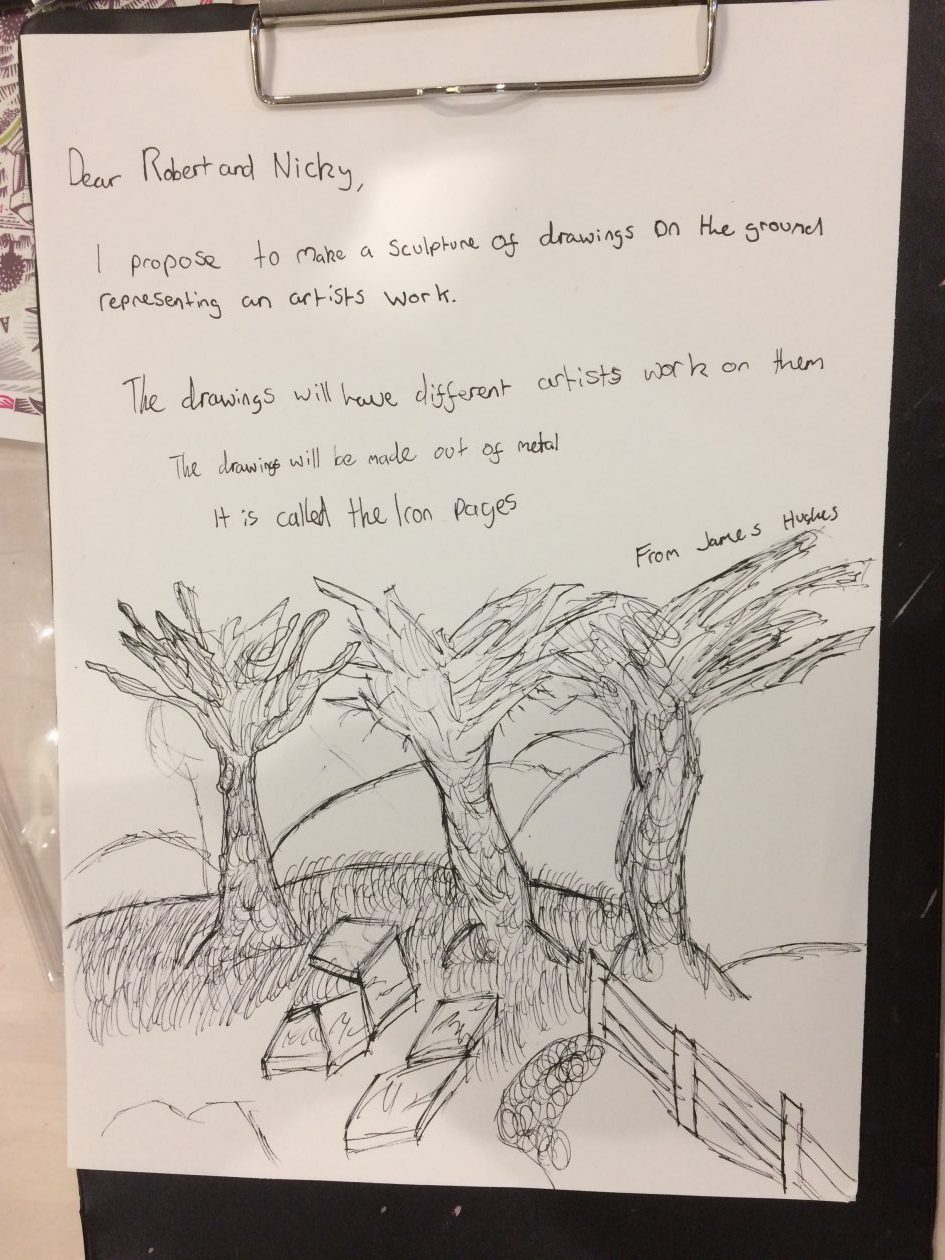 Dear Robert and Nicky,
I propose to make a sculpture of drawings on the ground
representing an artists work.
The drawings will have different artists work on them
The drawings will be made out of metal
It is called the Icon Pages
From James Hughes